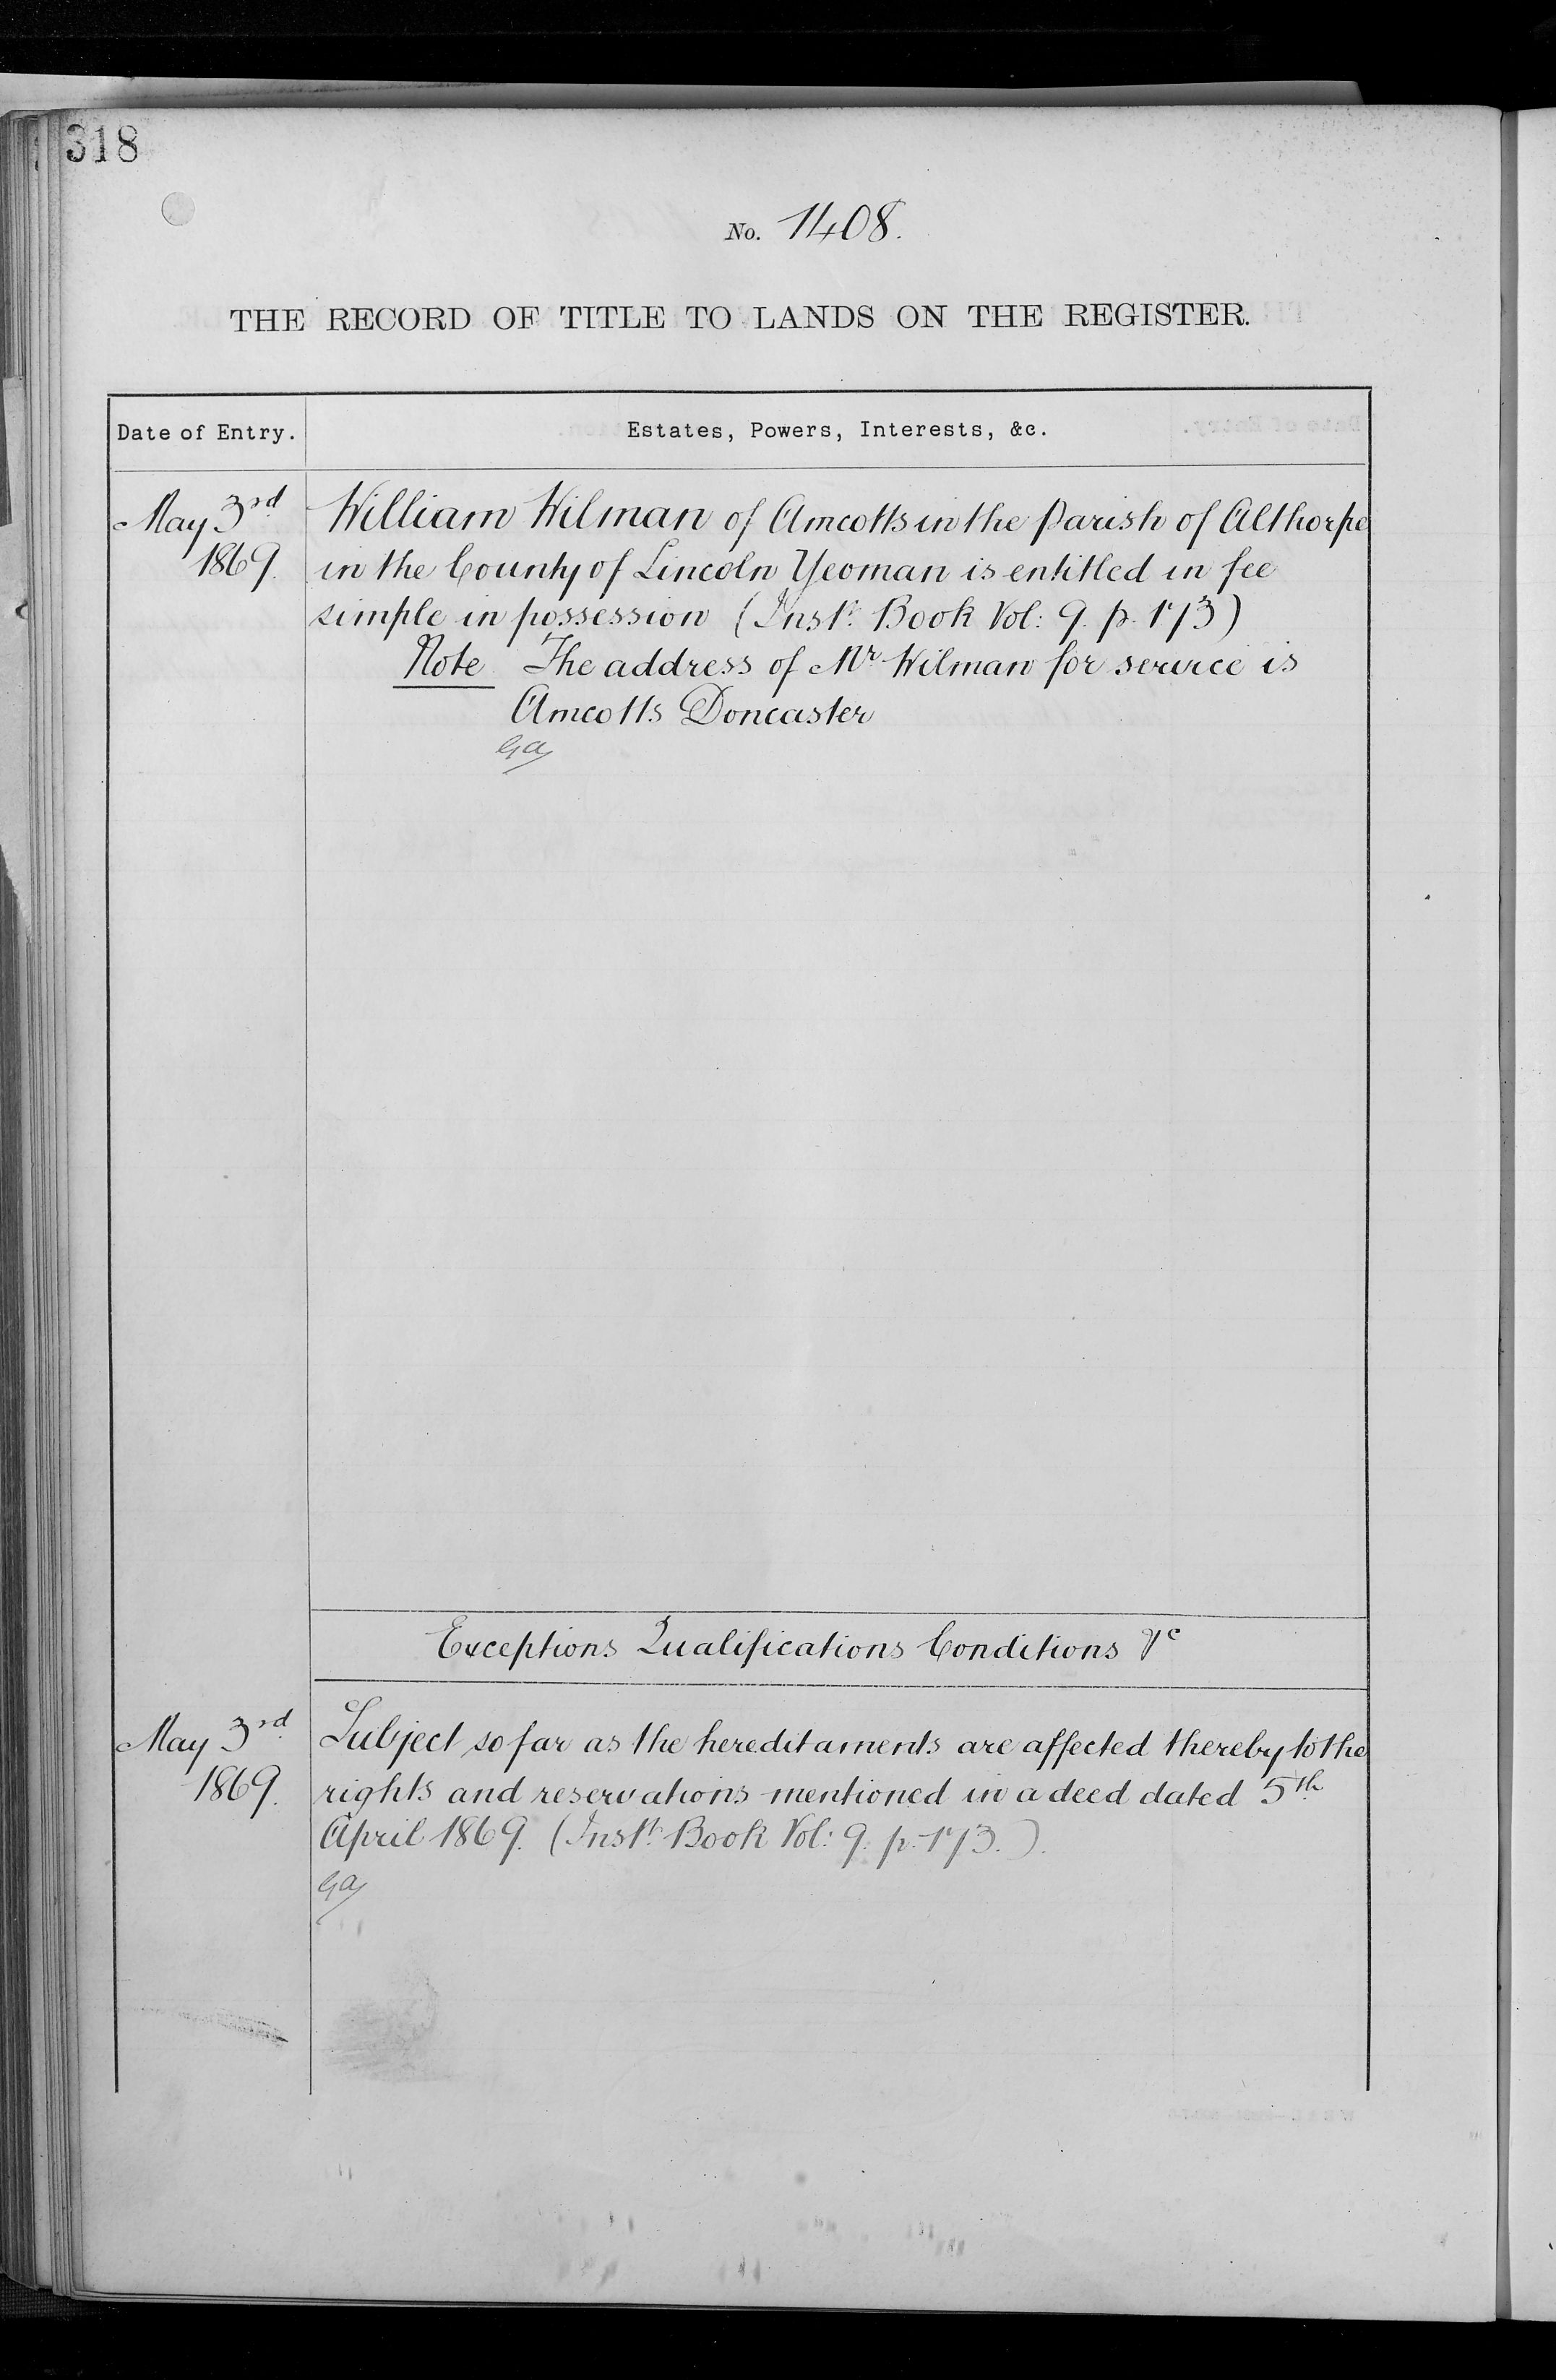 318
No. 1408.
THE RECORD OF TITLE TO LANDS ON THE REGISTER.
Date of Entry.
Estates, Powers, Interests, &c.
May 3rd
1869.
William Wilman of Amcotts in the Parish of Althorpe
in the County of Lincoln Yeoman is entitled in fee
simple in possession (Inst. Book Vol: 9. p. 173)
Note The address of Mr Wilman for service is
Amcotts Doncaster
Exceptions Qualifications Conditions &c
May 3rd
1869.
Subject so far as the hereditaments are affected thereby to the
rights and reservations mentioned in a deed dated 5th
April 1869. (Inst. Book Vol: 9. p. 173.).